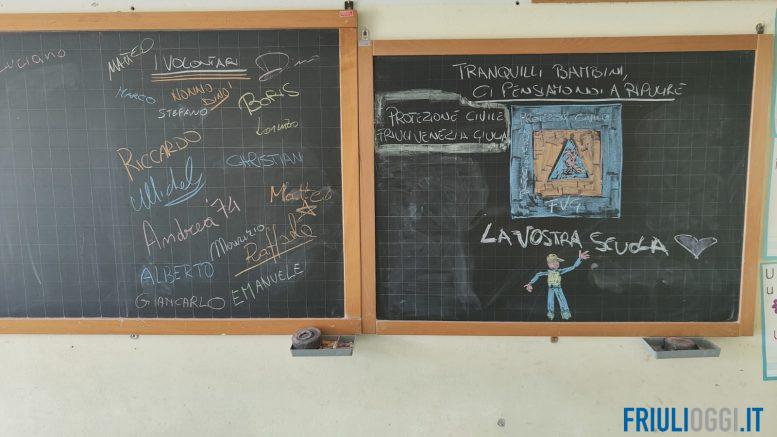 Luciano
MATTEO
I VOLONTARI
MARCO
NONNO
DINO
STEFANO
BORIS
Lorenzo
RICCARDO
CHRISTIAN
Matteo
Andrea '74
Maurizio
Raffaele
ALBERTO
EMANUELE
GIANCARLO
TRANQUILLI BAMBINI,
CI PENSIAMO NOI A RIPULIRE
PROTEZIONE CIVILE
FRIULI VENEZIA GIULIA
PROTEZIONE CIVILE
FVG
LA VOSTRA SCUOLA
FRIULIOGGI.IT